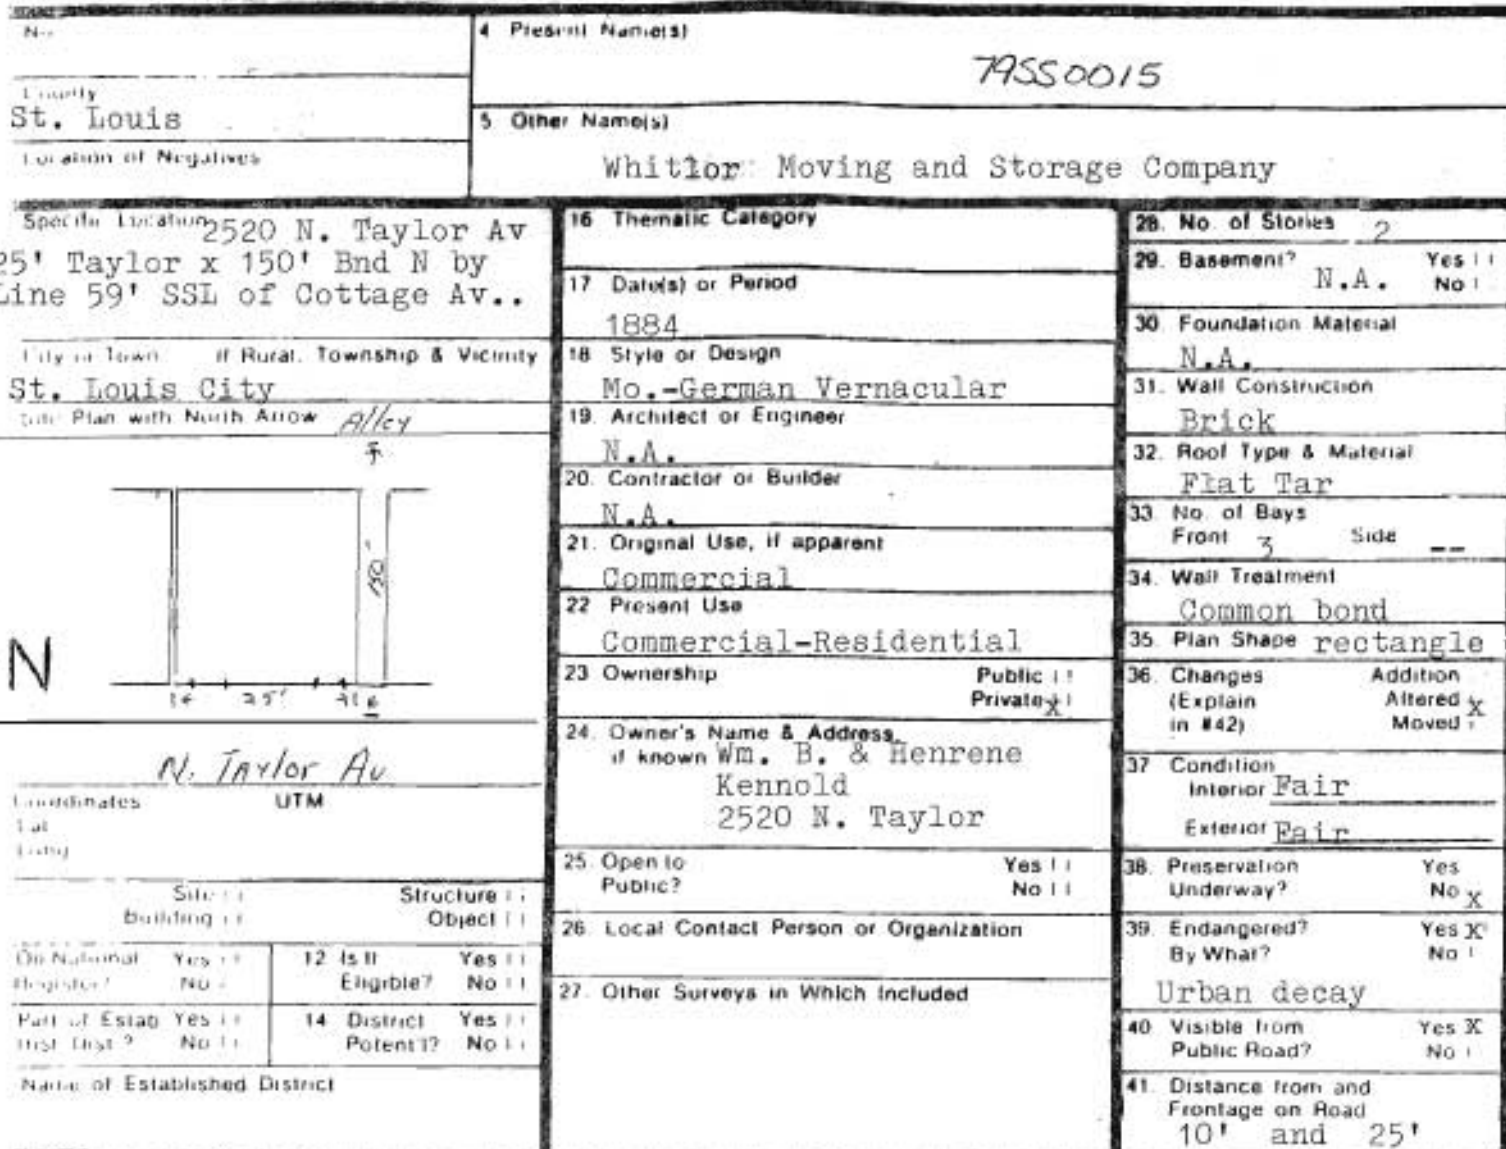 No.
4 Present Name(s)
79SS0015
County
St. Louis
5 Other Name(s)
Whitlor Moving and Storage Company
Location of Negatives
Specific Location 2520 N. Taylor Av
25' Taylor x 150' Bnd N by
Line 59' SSL of Cottage Av..
City or Town If Rural, Township & Vicinity
St. Louis City
Site Plan with North Arrow Alley
150'
N
25'
N. Taylor Av
Coordinates UTM
Lat
Long
Site Structure
Building Object
On National Register? Yes No
12 Is It Eligible? Yes No
Part of Estab Hist Dist? Yes No
14 District Potent'l? Yes No
Name of Established District
16 Thematic Category
17 Date(s) or Period
1884
18 Style or Design
Mo.-German Vernacular
19. Architect or Engineer
N.A.
20. Contractor or Builder
N.A.
21. Original Use, if apparent
Commercial
22 Present Use
Commercial-Residential
23 Ownership Public
Private X
24. Owner's Name & Address,
if known Wm. B. & Henrene
Kennold
2520 N. Taylor
25. Open to Yes
Public? No
26. Local Contact Person or Organization
27. Other Surveys in Which Included
28. No. of Stories 2
29. Basement? Yes
N.A. No
30. Foundation Material
N.A.
31. Wall Construction
Brick
32. Roof Type & Material
Flat Tar
33. No. of Bays
Front 3 Side --
34. Wall Treatment
Common bond
35. Plan Shape rectangle
36. Changes Addition
(Explain Altered X
in #42) Moved
37 Condition
Interior Fair
Exterior Fair
38. Preservation Yes
Underway? No X
39. Endangered? Yes X
By What? No
Urban decay
40 Visible from Yes X
Public Road? No
41. Distance from and
Frontage on Road
10' and 25'